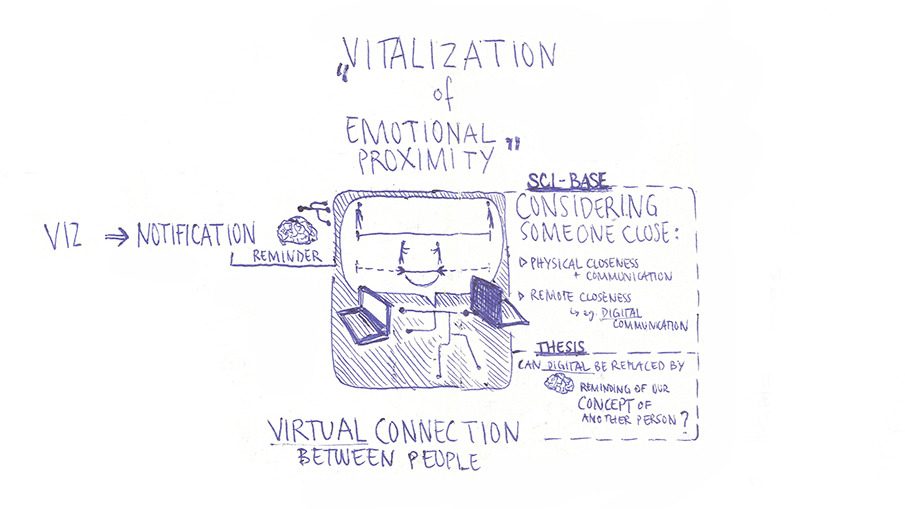 "VITALIZATION
of
EMOTIONAL
PROXIMITY"
VIZ ⇒ NOTIFICATION
REMINDER
SCI-BASE
CONSIDERING
SOMEONE CLOSE:
▷ PHYSICAL CLOSENESS
+ COMMUNICATION
▷ REMOTE CLOSENESS
↳ eg. DIGITAL
COMMUNICATION
THESIS
CAN DIGITAL BE REPLACED BY
REMINDING OF OUR
CONCEPT OF
ANOTHER PERSON?
VIRTUAL CONNECTION
BETWEEN PEOPLE